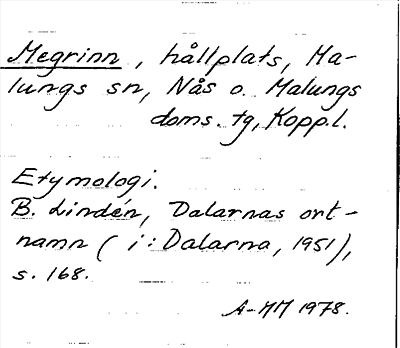 Megrinn, hållplats, Ma-
lungs sn, Nås o. Malungs
doms. tg, Kopp.l.
Etymologi.
B. Lindén, Dalarnas ort-
namn (i: Dalarna, 1951),
s. 168.
A-MM 1978.